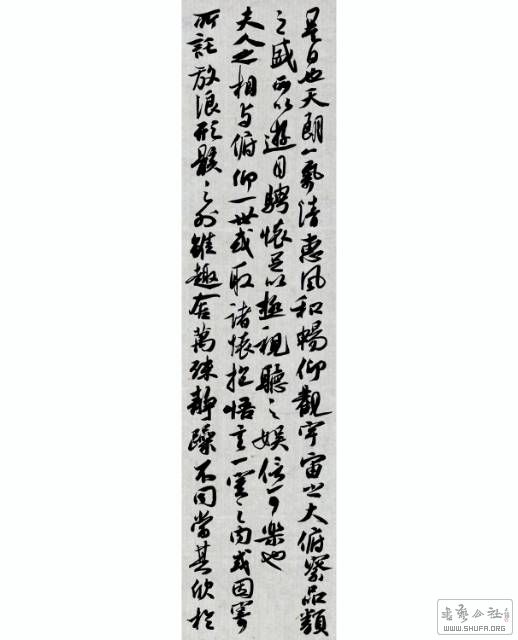 是日也天朗氣清惠風和暢仰觀宇宙之大俯察品類
之盛所以遊目騁懷足以極視聽之娛信可樂也
夫人之相與俯仰一世或取諸懷抱悟言一室之內或因寄
所託放浪形骸之外雖趣舍萬殊靜躁不同當其欣於
WWW.SHUFA.ORG